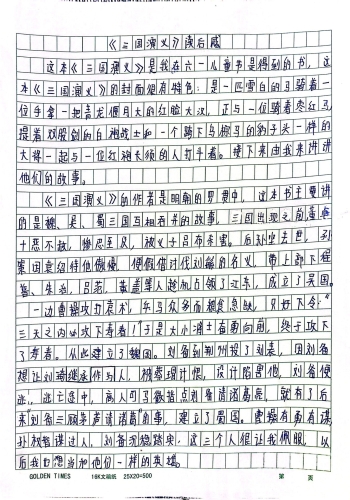 《三国演义》读后感
这本《三国演义》是我在六一儿童节是得到的书，这
本《三国演义》的封面很有特色：是一匹雪白的马骑着一
位手拿一把青龙偃月大的红脸大汉，正与一位骑着枣红马
提着双股剑的白袍战士和一个跨下乌骓马的豹子头一样的
大将一起与一位红袍长须的人打斗着。接下来由我来讲讲
他们的故事。
《三国演义》的作者是明朝的罗贯中，这本书主要讲
的是魏、吴、蜀三国互相吞并的故事。三国出现之前董卓
十恶不赦，被义子吕布杀害。后孙坚去世，孙
策因袁绍待他傲慢，便假借讨伐刘繇的名义，带上部下程
普、朱治、吕范、黄盖等人趁机占领了江东，成立了吴国。
一边曹操攻打袁术，兵马众多而粮食急缺，只好下令：“
三天之内必攻下寿春！”于是大小将士奋勇向前，终于攻下
了寿春。从此建立了魏国。刘备到荆州投了刘表，因刘备
想让刘琦继承，被蔡瑁计恨，设计陷害他，刘备便
逃。逃亡途中，高人司马徽指点刘备请诸葛亮，就有了后
来“刘备三顾茅庐请诸葛”的事，建立了蜀国。曹操有勇有谋
孙权智谋过人，刘备，这三个人很让我佩服，以
后我也想当和他们一样的英雄。
GOLDEN TIMES 16K文稿纸 25X20=500 第 页